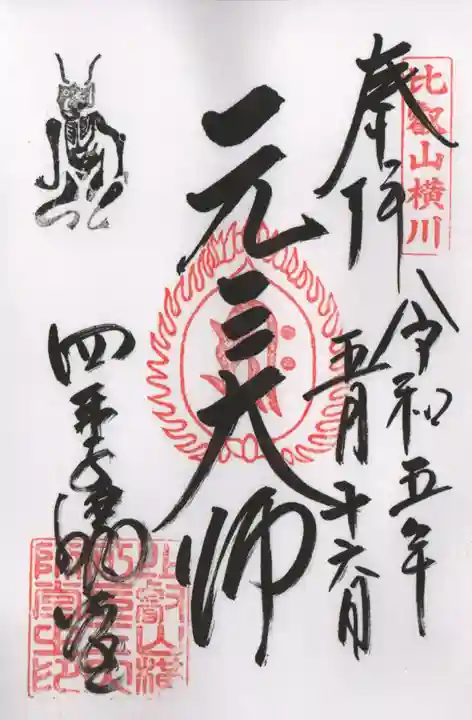 比叡山横川
奉拝
令和五年
五月十六日
元三大師
四季講堂
比叡山横
川元三大
師堂之印